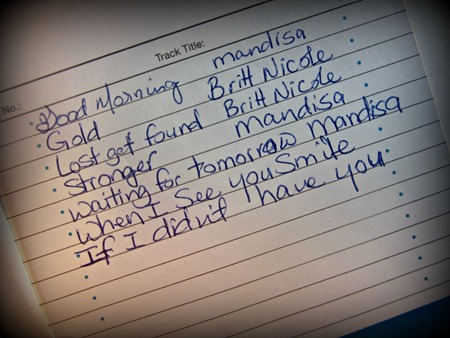 Track Title:
No.:
Good Morning mandisa
Gold Britt Nicole
Lost get found Britt Nicole
Stronger mandisa
waiting for tomorrow mandisa
When I see you Smile
If I didn't have you